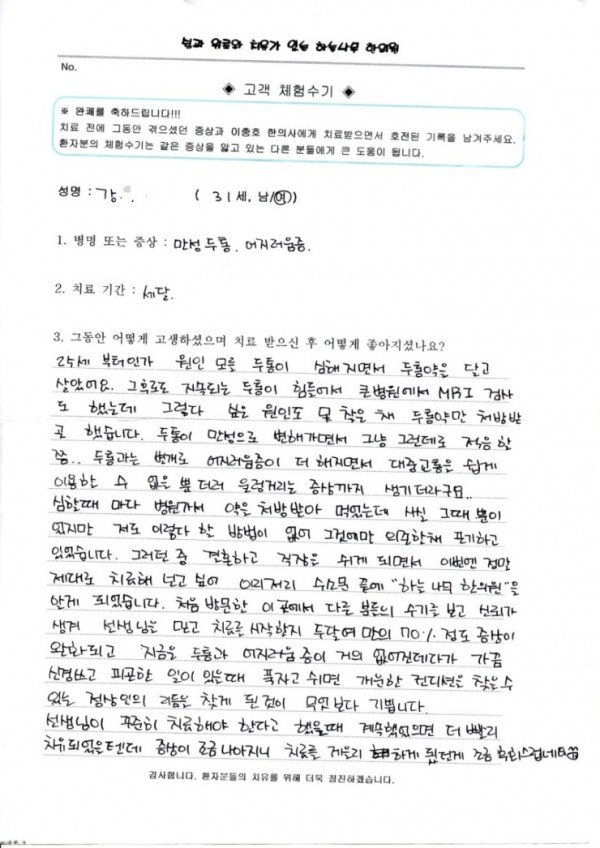 No.
◈ 고객 체험수기 ◈
※ 완쾌를 축하드립니다!!!
치료 전에 그동안 겪으셨던 증상과 이충호 한의사에게 치료받으면서 호전된 기록을 남겨주세요.
환자분의 체험수기는 같은 증상을 앓고 있는 다른 분들에게 큰 도움이 됩니다.
성명 : 강. ( 31세, 남/여)
1. 병명 또는 증상 : 만성두통, 어지러움증.
2. 치료 기간 : 세달.
3. 그동안 어떻게 고생하셨으며 치료 받으신 후 어떻게 좋아지셨나요?
25세 부터인가 원인 모를 두통이 심해지면서 두통약은 달고
살았어요. 그 후로도 지속되는 두통이 힘들어서 큰병원에서 MRI 검사
도 했는데 그렇다 싶은 원인도 못 찾은 채 두통약만 처방받
곤 했습니다. 두통이 만성으로 변해가면서 그냥 그런데로 적응할
쯤.. 두통과는 별개로 어지러움증이 더해지면서 대중교통은 쉽게
이용할 수 없을 뿐더러 울렁거리는 증상까지 생기더라구요..
심할때 마다 병원가서 약을 처방받아 먹었는데 사실 그때 뿐이
었지만 저도 이렇다 할 방법이 없어 그것에만 의존한채 포기하고
있었습니다. 그러던 중 결혼하고 직장을 쉬게 되면서 이번엔 정말
제대로 치료해 보고 싶어 이리저리 수소문 끝에 "하늘나무 한의원"을
알게 되었습니다. 처음 방문한 이 곳에서 다른 분들의 수기를 보고 신뢰가
생겨 선생님을 믿고 치료를 시작한지 두달여 만의 70% 정도 증상이
완화되고 지금은 두통과 어지러움증이 거의 없어진데다가 가끔
신경쓰고 피곤한 일이 있을때 푹자고 쉬면 개운한 컨디션을 찾을수
있는 정상인의 리듬을 찾게 된것이 무엇보다 기쁩니다.
선생님이 꾸준히 치료해야 한다고 했을때 계속했었으면 더 빨리
치유되었을텐데 증상이 조금 나아지니 치료를 게을리 하게 됬던게 조금 후회스럽네요
감사합니다. 환자분들의 치유를 위해 더욱 정진하겠습니다.